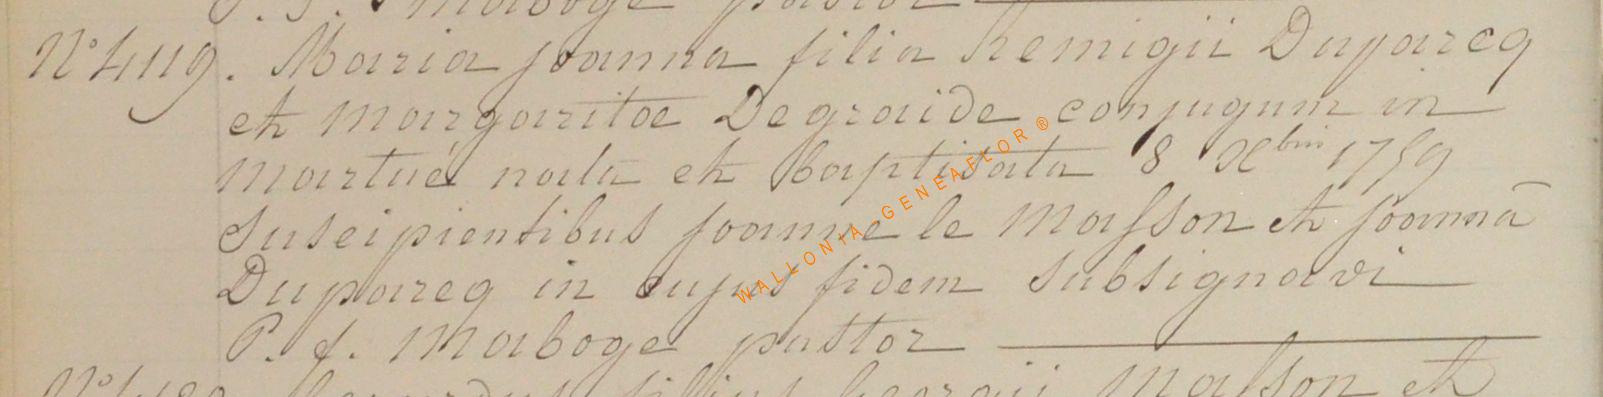 P. J. Maboge pastor
N° 4119. Maria Joanna filia Remigii Duparcq
et Margaritae Degraide conjugum in
Martué nata et baptisata 8 Xbris 1759
Suscipientibus Joanne le Masson et Joannâ
Duparcq in cujus fidem subsignavi
P. J. Maboge pastor
filius Georgii Masson et
WALLONIA-GENEAFLOR®